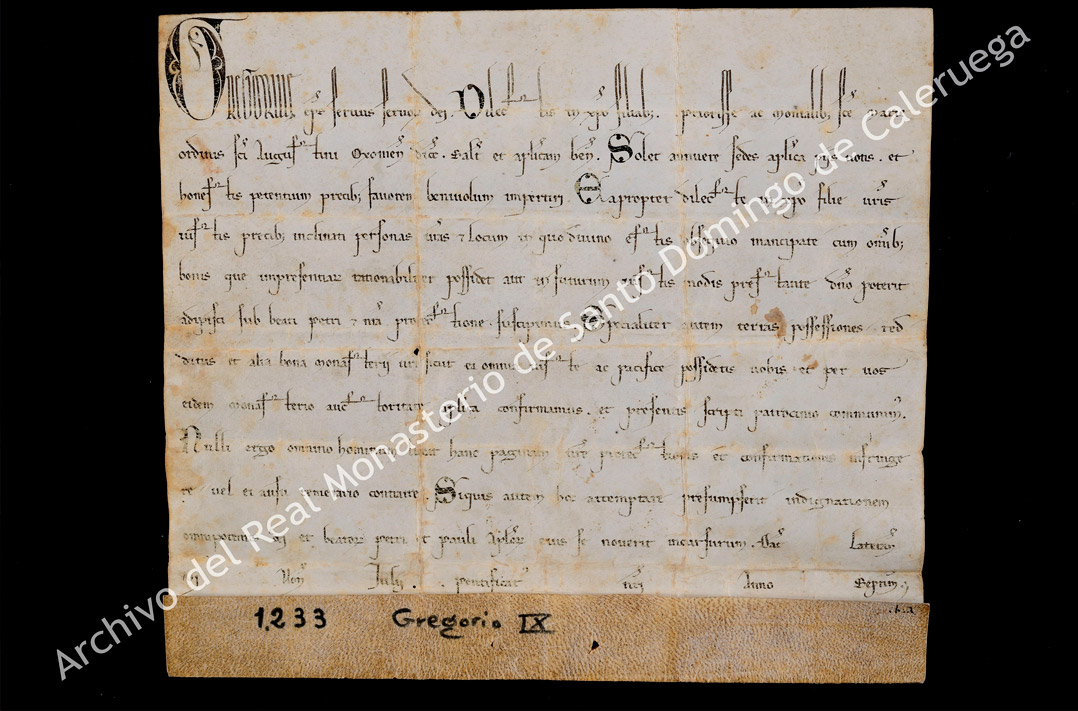 Gregorius ep̄s servus servoꝝ dei. Dilectis in xp̄o filiabꝫ. priorisse ac monialibꝫ sc̄e Marie
ordinis sc̄i Augustini Oxomen̄ dioc̄. Salt̄ et apl̄icam ben̄. Solet annuere sedes apl̄ica piis votis. et
honestis petentium precibꝫ favorem benivolum impertiri. Eapropter dilecte in xp̄o filie vr̄is
iustis precibꝫ inclinati personas vr̄as ⁊ locum in quo divino estis obsequio mancipate cum omībꝫ
bonis que impresentiaꝝ rationabiliter possidet aut in futurum iustis modis prestante dn̄o poterit
adipisci sub beati petri ⁊ nr̄a protectione suscipimus. Specialiter autem terras possessiones red
ditus et alia bona monasterii vr̄i sicut ea omnia iuste ac pacifice possidetis vobis. et per vos
eidem monasterio auctoritate apl̄ica confirmamus. et presentis scripti patrocinio communim̄.
Nulli ergo omnino hominum liceat hanc paginam nr̄e protectionis et confirmationis infringe
re vel ei ausu temerario contraire. Siquis autem hoc attemptare presumpserit indignationem
omnipotentis dei et beatoꝝ petri et pauli Apl̄oꝝ eius se noverit incursurum. Dat̄ Lateran̄
Non̄ Julii. pontificat̄ nr̄i Anno Septimo.
1,233 Gregorio IX
Archivo del Real Monasterio de Santo Domingo de Caleruega